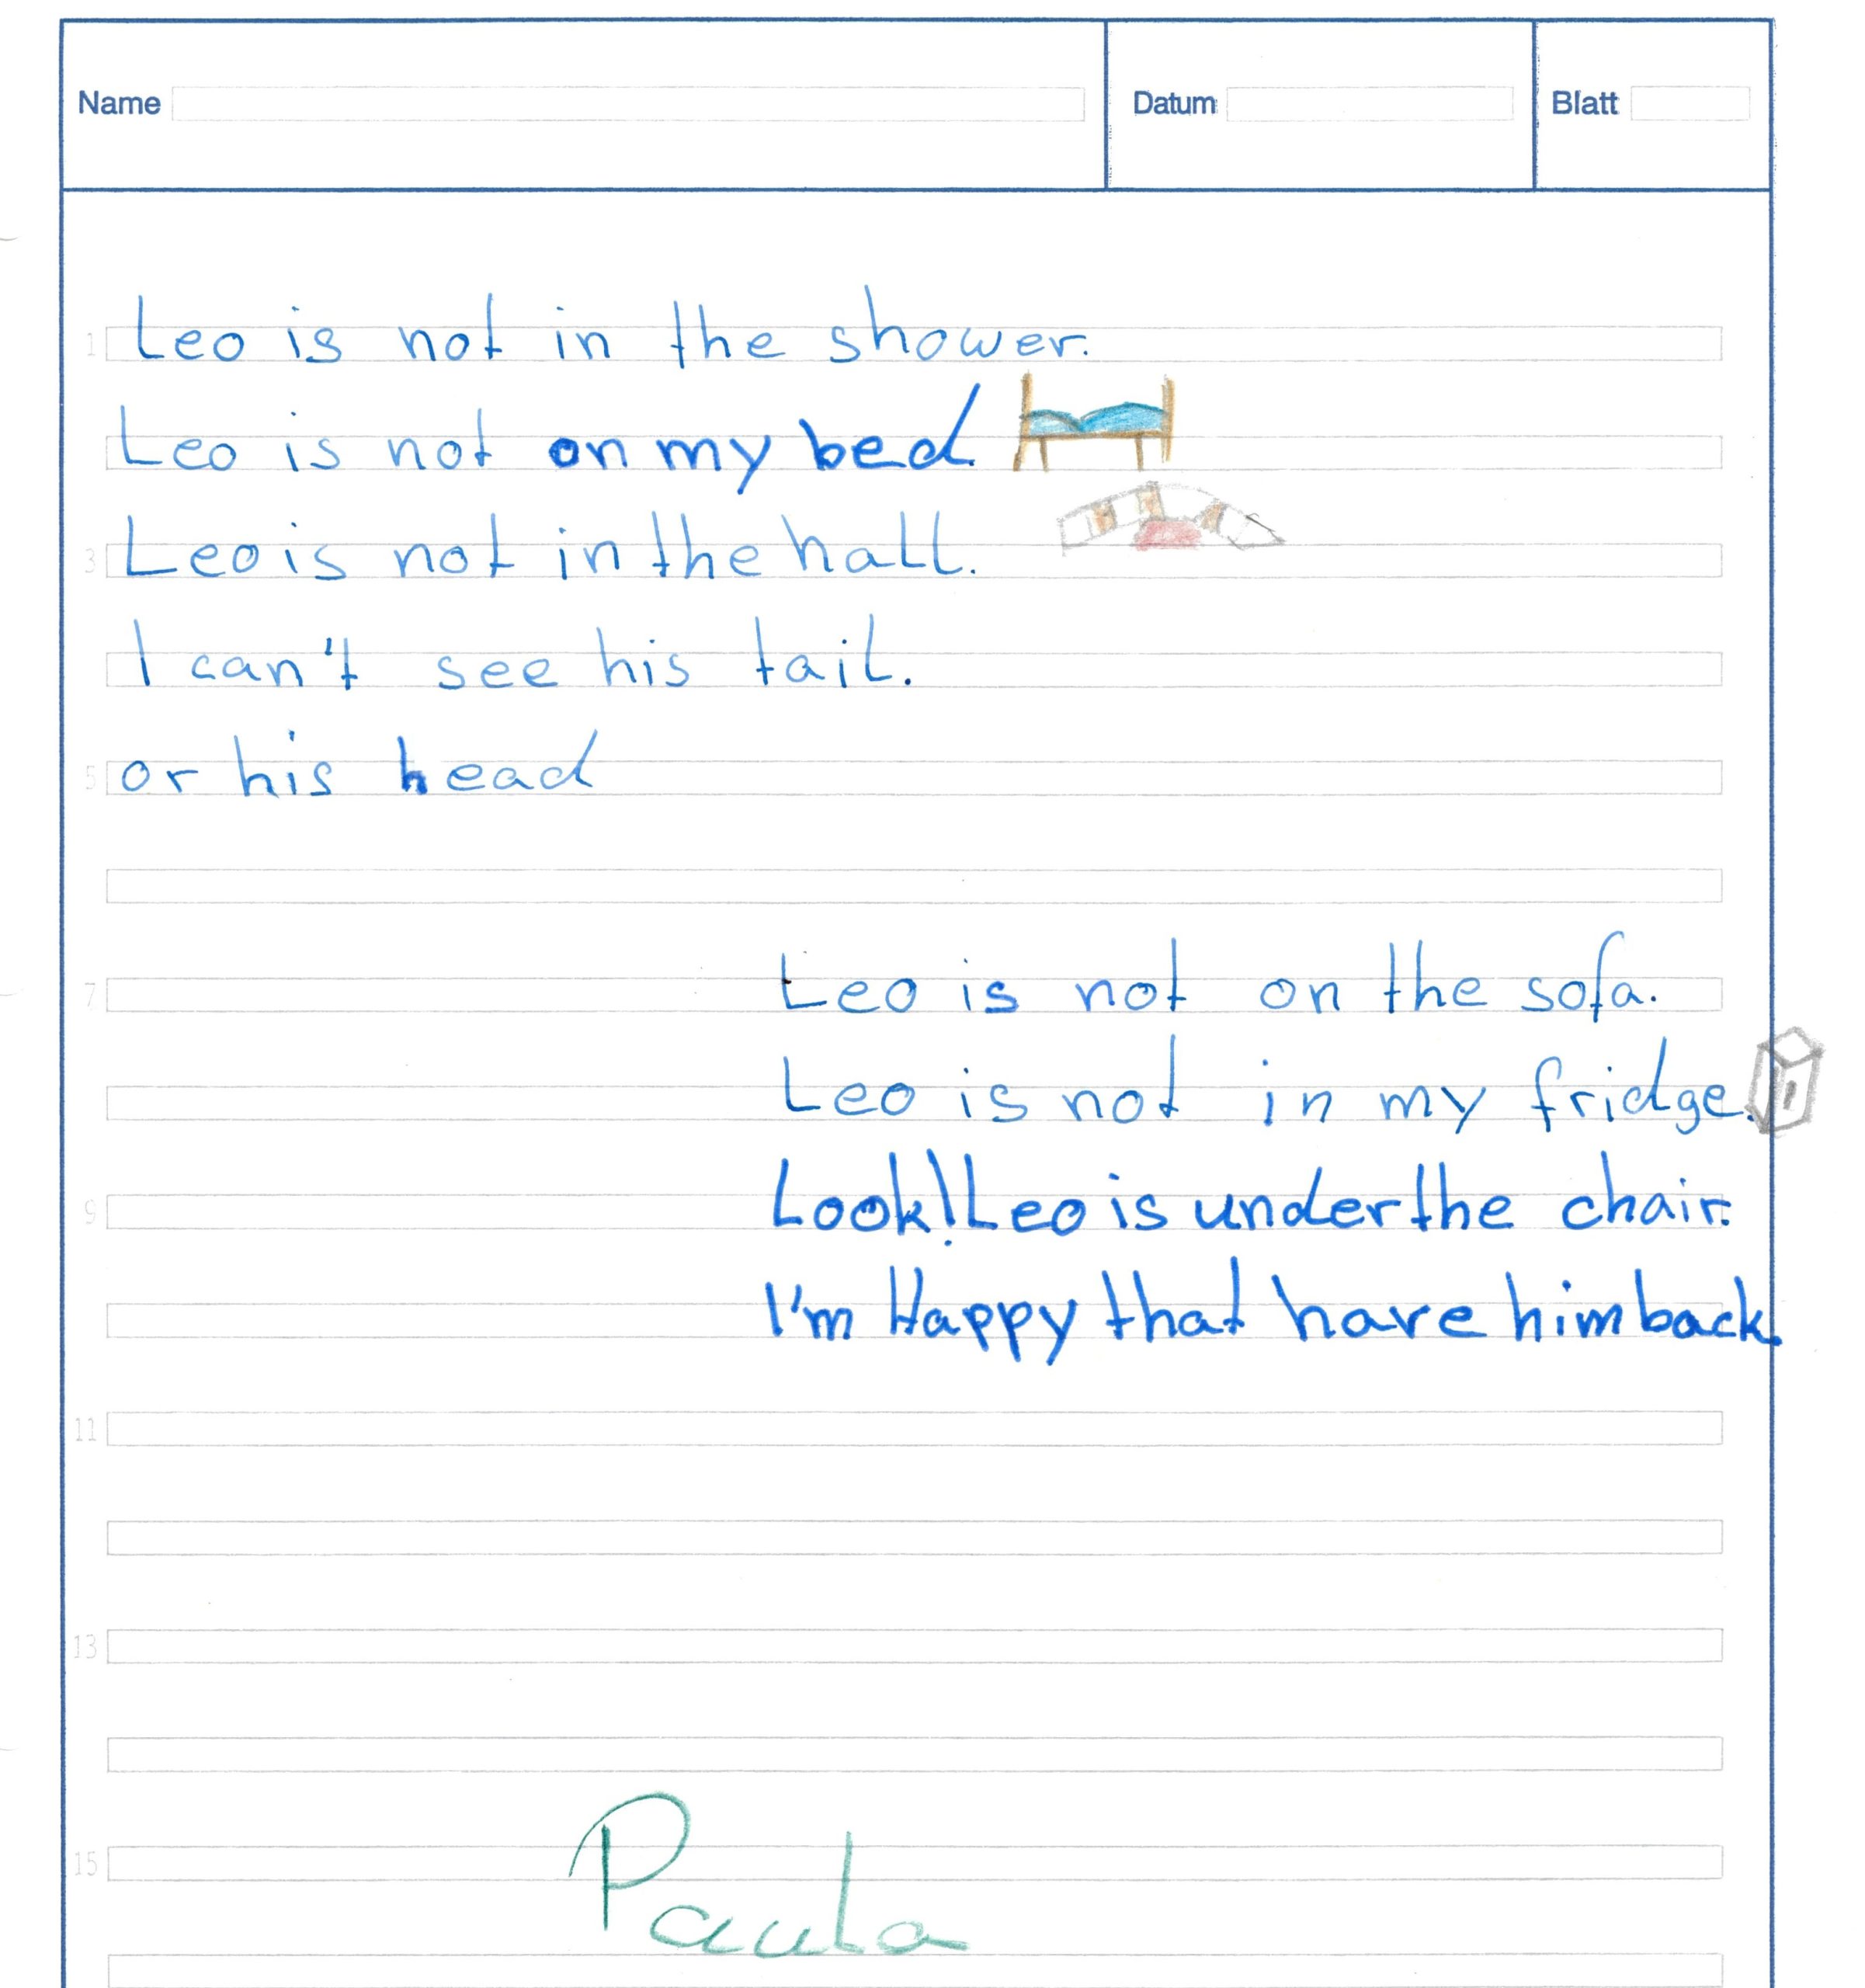 Name Datum Blatt
1 Leo is not in the shower.
Leo is not on my bed.
3 Leo is not in the hall.
I can't see his tail.
5 or his head
7 Leo is not on the sofa.
Leo is not in my fridge.
9 Look! Leo is under the chair.
I'm Happy that have him back.
11
13
15
Paula